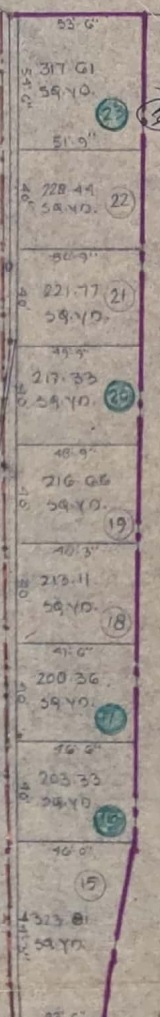 53'-6"
317.61
SQ.YD.
54'-6"
23
51'-9"
228.44
SQ.YD.
40'
22
221.77
SQ.YD.
40'
21
49'-9"
217.33
SQ.YD.
20
48'-9"
216.66
SQ.YD.
40'
19
213.11
SQ.YD.
18
47'-6"
200.36
SQ.YD.
40'
17
203.33
SQ.YD.
40'
16
46'-0"
15
323.81
SQ.YD.